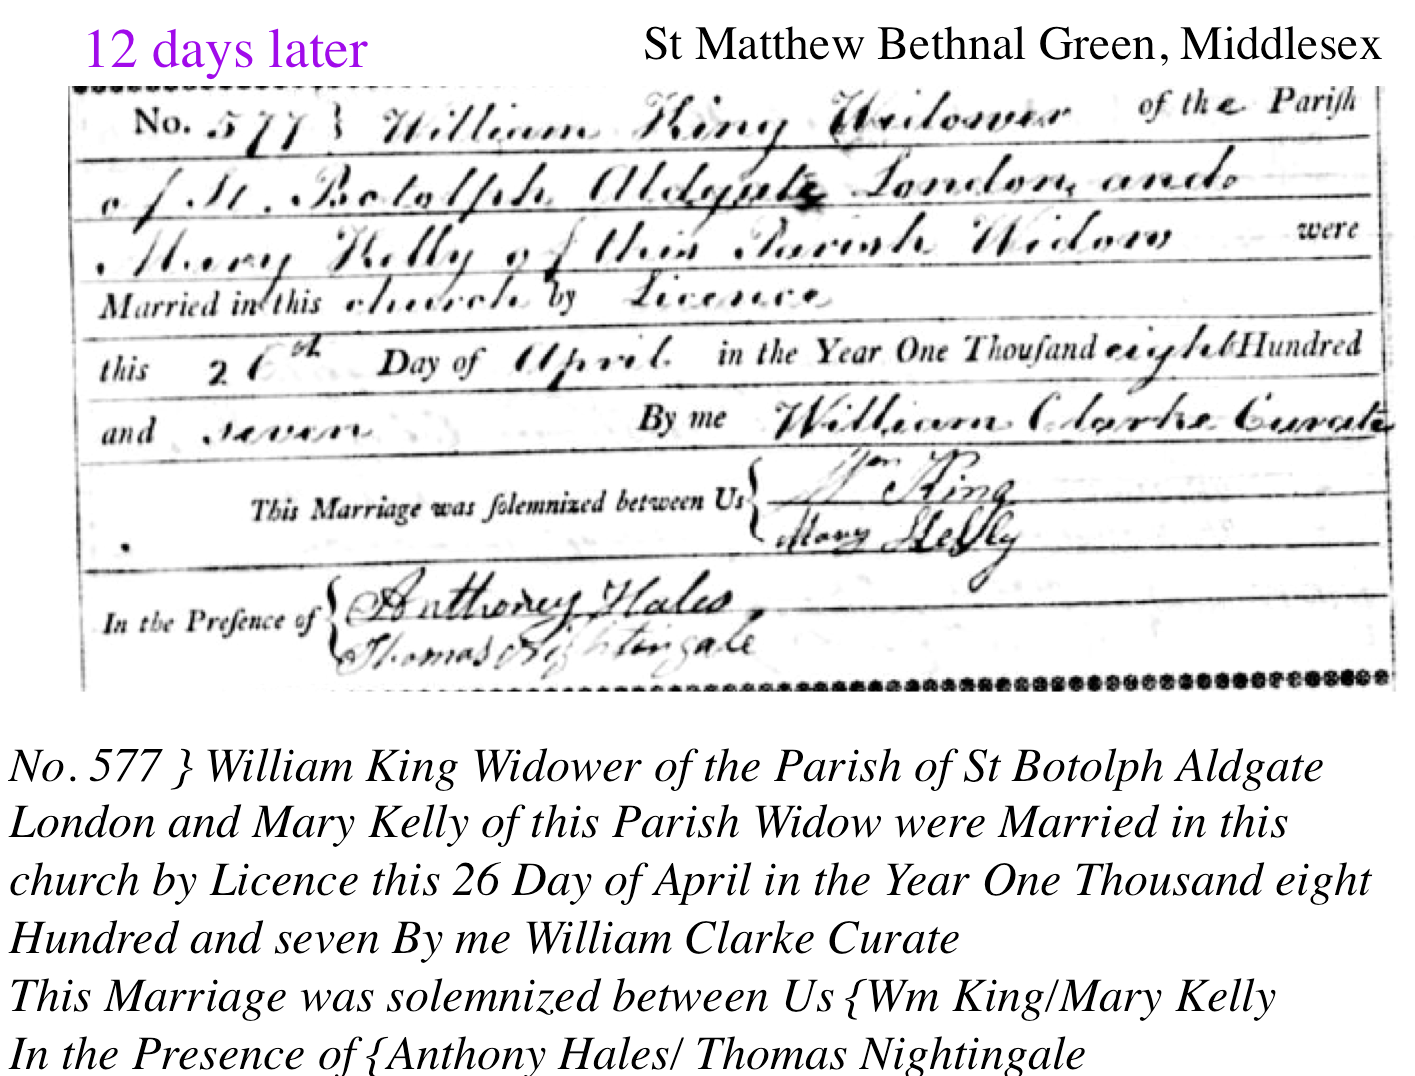 12 days later
St Matthew Bethnal Green, Middlesex
No. 577 } William King Widower of the Pariſh
of St. Botolph Aldgate London and
Mary Kelly of this Parish Widow were
Married in this church by Licence
this 26th Day of April in the Year One Thouſand eight Hundred
and seven By me William Clarke Curate
This Marriage was ſolemnized between Us { Wm King
Mary Kelly
In the Preſence of { Anthoney Hales
Thomas Nightingale
No. 577 } William King Widower of the Parish of St Botolph Aldgate
London and Mary Kelly of this Parish Widow were Married in this
church by Licence this 26 Day of April in the Year One Thousand eight
Hundred and seven By me William Clarke Curate
This Marriage was solemnized between Us {Wm King/Mary Kelly
In the Presence of {Anthony Hales/ Thomas Nightingale